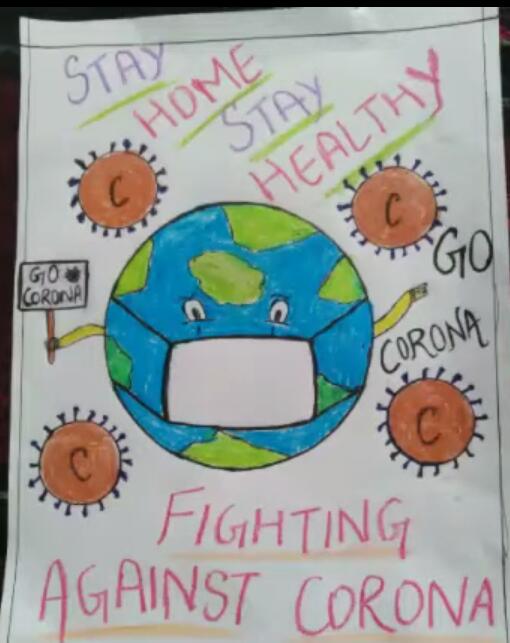 STAY
HOME
STAY
HEALTHY
C
C
GO
GO
CORONA
CORONA
C
C
FIGHTING
AGAINST CORONA